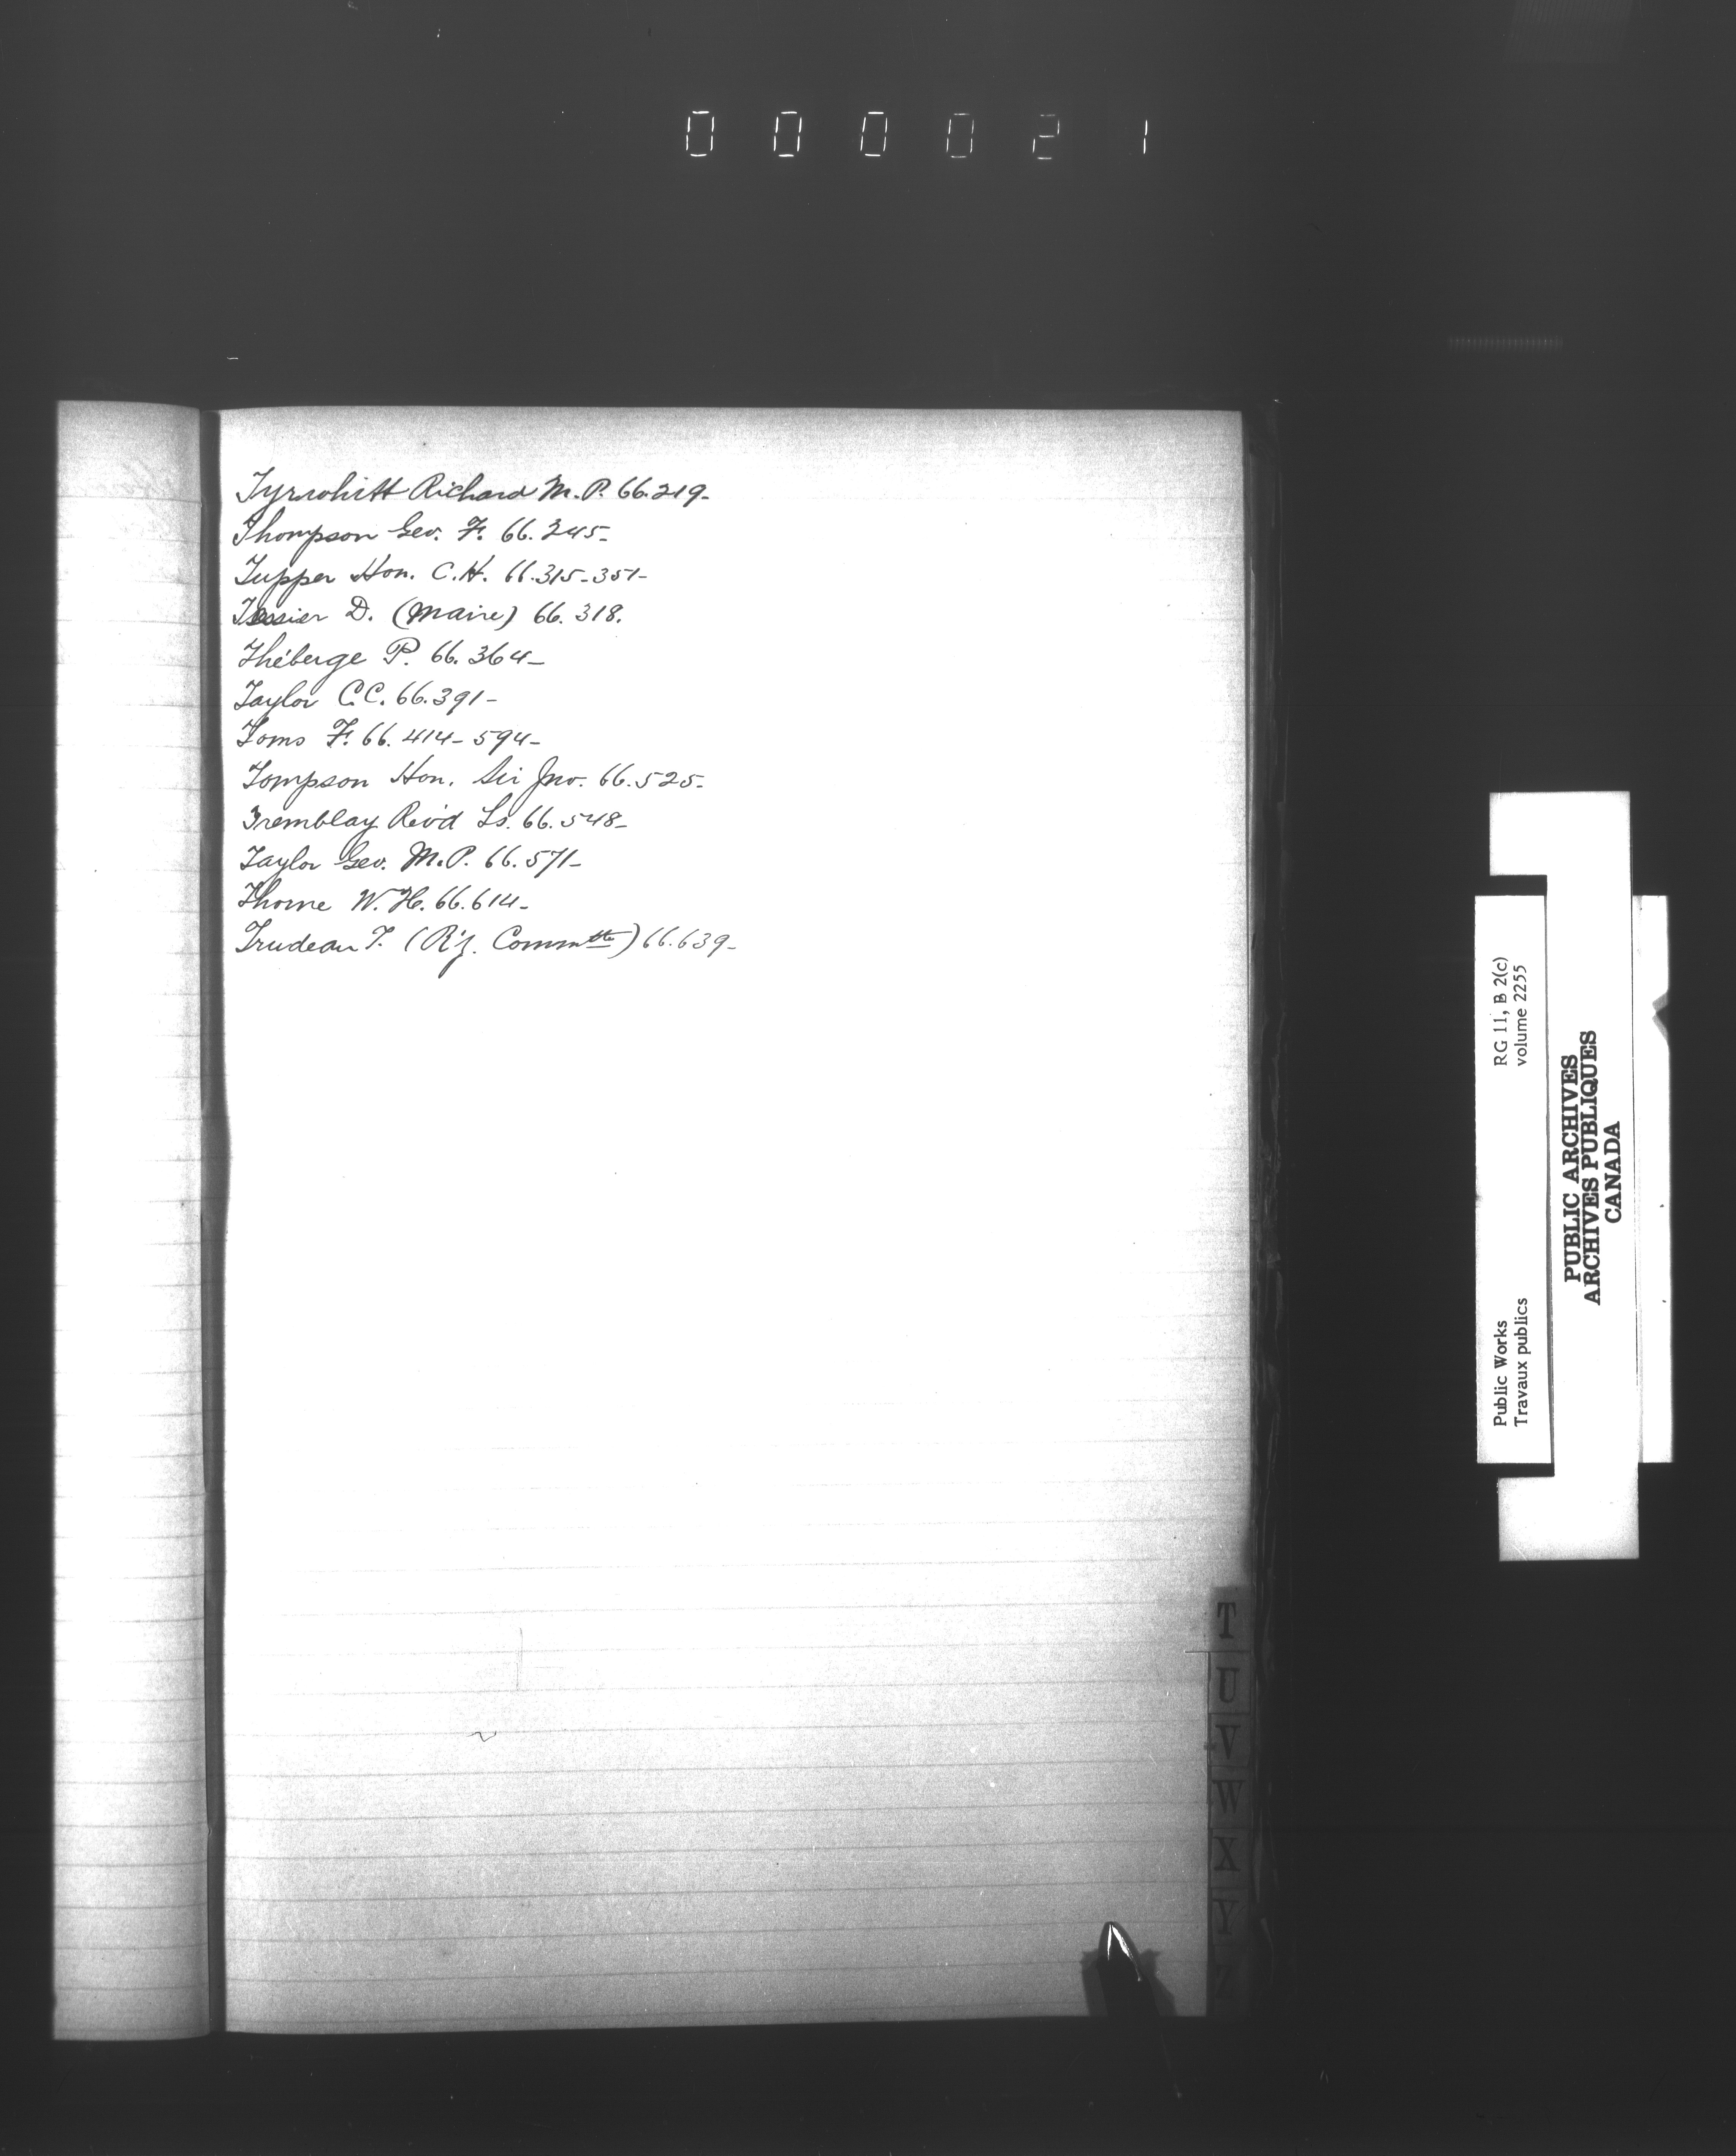 000021
Tyrwhitt Richard M.P. 66.219-
Thompson Geo. F. 66.245-
Tupper Hon. C.H. 66.315-351-
Tessier D. (Maire) 66.318.
Théberge P. 66.364-
Taylor C.C. 66.391-
Toms F. 66.414-594-
Tompson Hon. Sir Jno. 66.525-
Tremblay Rev'd Ls. 66.548-
Taylor Geo. M.P. 66.571-
Thorne W.H. 66.614-
Trudeau T. ( Committe) 66.639-
T
U
V
W
X
Y
Z
Public Works
Travaux publics
RG 11, B 2(c)
volume 2255
PUBLIC ARCHIVES
ARCHIVES PUBLIQUES
CANADA